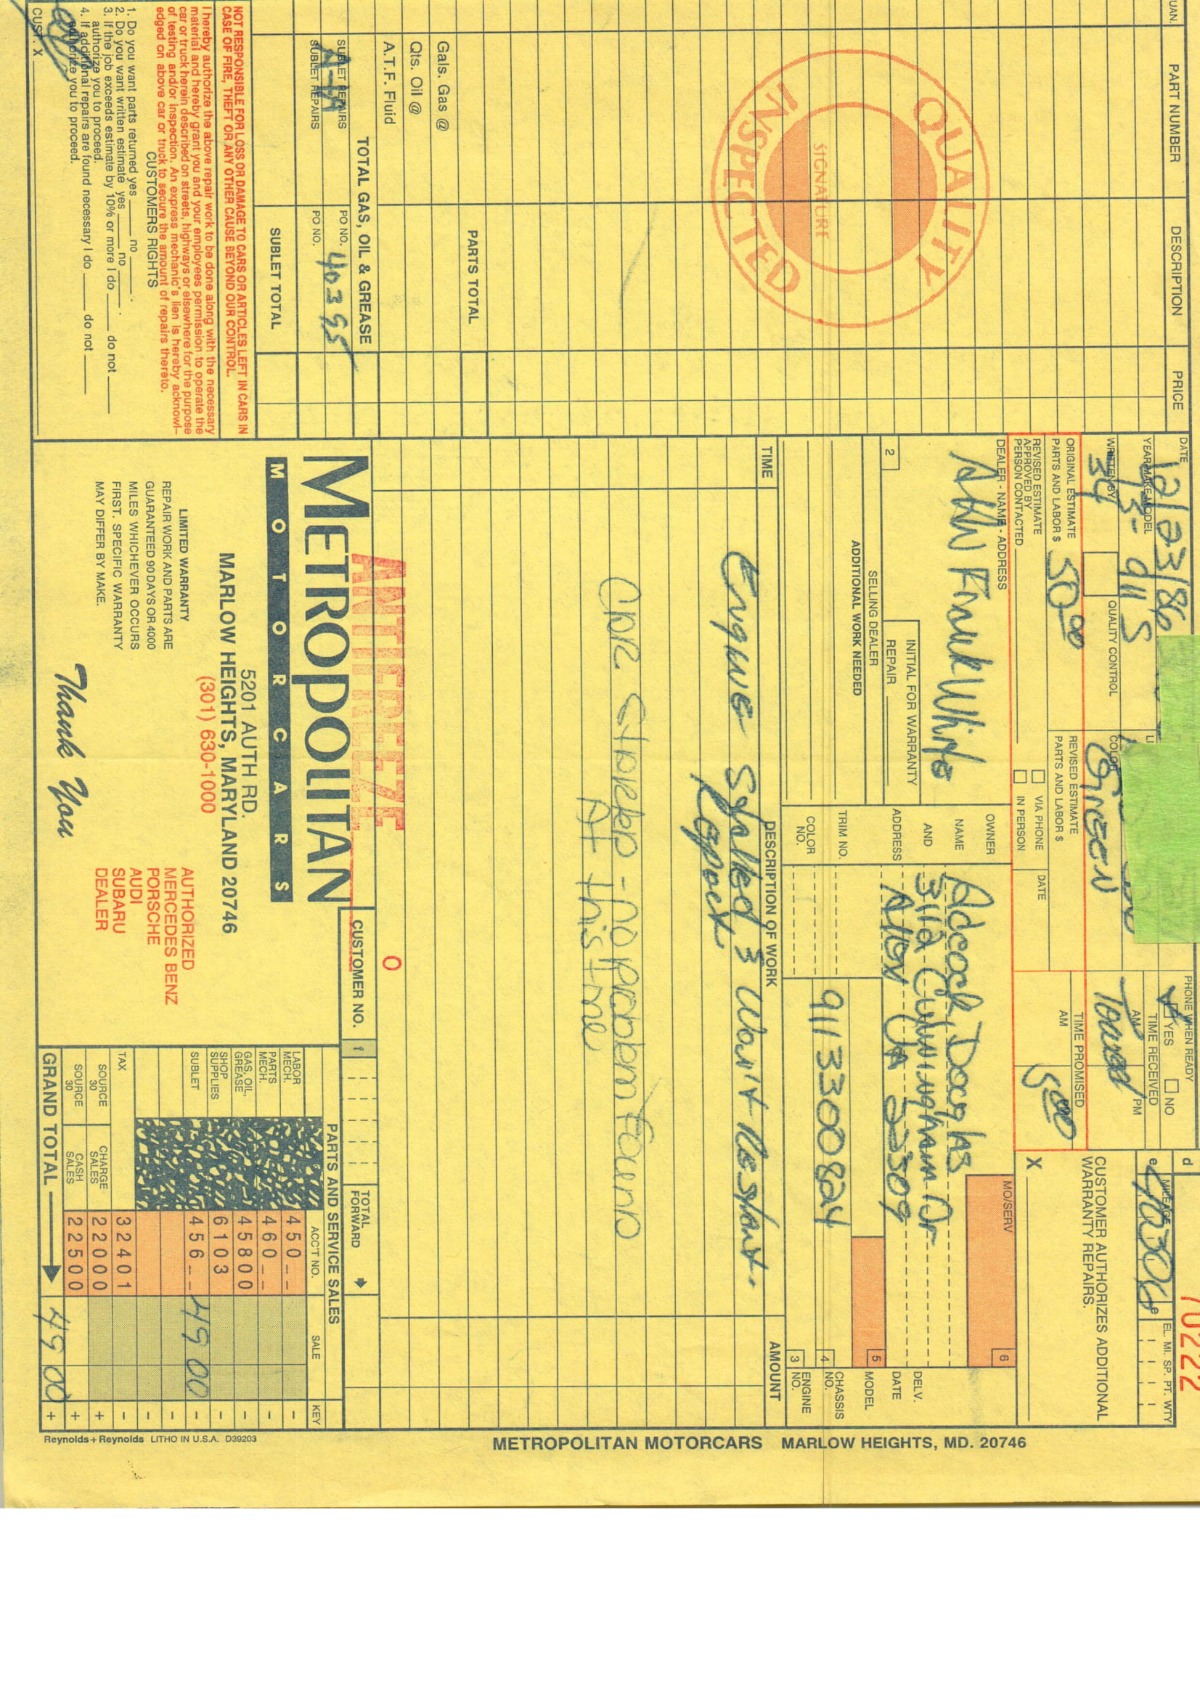 UAN.
PART NUMBER
DESCRIPTION
PRICE
QUALITY
SIGNATURE
INSPECTED
PARTS TOTAL
Gals. Gas @
Qts. Oil @
A.T.F. Fluid
TOTAL GAS, OIL & GREASE
SUBLET REPAIRS
PO NO. 40395
SUBLET REPAIRS
PO NO.
SUBLET TOTAL
NOT RESPONSIBLE FOR LOSS OR DAMAGE TO CARS OR ARTICLES LEFT IN CARS IN
CASE OF FIRE, THEFT OR ANY OTHER CAUSE BEYOND OUR CONTROL.
I hereby authorize the above repair work to be done along with the necessary
material and hereby grant you and your employees permission to operate the
car or truck herein described on streets, highways or elsewhere for the purpose
of testing and/or inspection. An express mechanic's lien is hereby acknowl-
edged on above car or truck to secure the amount of repairs thereto.
CUSTOMERS RIGHTS
1. Do you want parts returned yes ____ no ____.
2. Do you want written estimate yes ____ no ____.
3. If the job exceeds estimate by 10% or more I do ____ do not ____
authorize you to proceed.
4. If additional repairs are found necessary I do ____ do not ____
authorize you to proceed.
CUST. X
70222
DATE 12/23/86
PHONE WHEN READY
YES NO
MILEAGE
EL. MI. SP. PT. WTY
YEAR-MAKE-MODEL
73-911S
TIME RECEIVED
AM PM
Towed
WRITTEN BY
34
QUALITY CONTROL
COLOR
Green
CUSTOMER AUTHORIZES ADDITIONAL
WARRANTY REPAIRS.
X
ORIGINAL ESTIMATE
PARTS AND LABOR $ 50.00
REVISED ESTIMATE
PARTS AND LABOR $
TIME PROMISED
AM 5:00
REVISED ESTIMATE
APPROVED BY
PERSON CONTACTED
VIA PHONE
IN PERSON
DATE
DEALER - NAME - ADDRESS
Attn Frank White
OWNER
NAME
AND
ADDRESS
Adcock, Douglas
3112 Cunningham Dr
Alex VA 22309
MO/SERV 6
DELV.
DATE
2
INITIAL FOR WARRANTY
REPAIR
SELLING DEALER
ADDITIONAL WORK NEEDED
5 MODEL
TRIM NO.
9113300824
4 CHASSIS
NO.
COLOR
NO.
3 ENGINE
NO.
TIME
DESCRIPTION OF WORK
AMOUNT
Engine Stalled & Won't Restart.
Report
Car started - no problem found
At this time
ANTIFREEZE
0
METROPOLITAN
MOTORCARS
5201 AUTH RD.
MARLOW HEIGHTS, MARYLAND 20746
(301) 630-1000
LIMITED WARRANTY
REPAIR WORK AND PARTS ARE
GUARANTEED 90 DAYS OR 4000
MILES WHICHEVER OCCURS
FIRST. SPECIFIC WARRANTY
MAY DIFFER BY MAKE.
Thank You
AUTHORIZED
MERCEDES BENZ
PORSCHE
AUDI
SUBARU
DEALER
CUSTOMER NO.
TOTAL
FORWARD
PARTS AND SERVICE SALES
ACC'T NO.
SALE
KEY
LABOR
MECH.
450--
-
PARTS
MECH.
460--
-
GAS, OIL,
GREASE
45800
-
SHOP
SUPPLIES
6103
-
SUBLET
456-- 49 00
-
TAX
32401
-
SOURCE
30
CHARGE
SALES
22000
+
SOURCE
30
CASH
SALES
22500
+
GRAND TOTAL 49 00
+
Reynolds + Reynolds LITHO IN U.S.A. D39203
METROPOLITAN MOTORCARS MARLOW HEIGHTS, MD. 20746